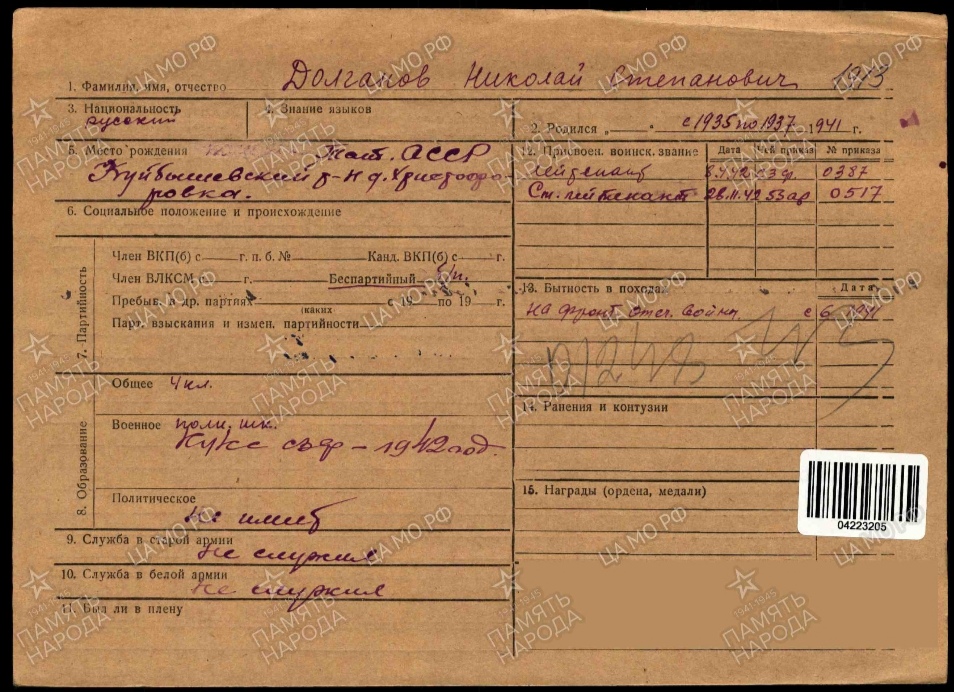 1. Фамилия, имя, отчество Долганов Николай Степанович 1913
3. Национальность русский
4. Знание языков
2. Родился „ “ с 1935 по 1937, 1941 г.
5. Место рождения Тат. АССР
Куйбышевский р-н д. Христофо-
ровка.
6. Социальное положение и происхождение
7. Партийность
Член ВКП(б) с г. п. б. № Канд. ВКП(б) с г.
Член ВЛКСМ с г. Беспартийный б/п.
Пребыв. в др. партиях с 19 по 19 г.
(каких
Парт. взыскания и измен. партийности
8. Образование
Общее 4 кл.
Военное полк. шк.
КУКС СЗФ - 1942 год.
Политическое
не имеет
9. Служба в старой армии
не служил
10. Служба в белой армии
не служил
11. Был ли в плену
12. Присвоен. воинск. звание Дата Чей приказ № приказа
Лейтенант 0387
Ст. лейтенант 28.11.42 53 ар 0517
13. Бытность в походах Дата
на фронт. отеч. войны с 6. 1941
14. Ранения и контузии
15. Награды (ордена, медали)
04223205
ПАМЯТЬ
НАРОДА
1941-1945
ЦА МО РФ